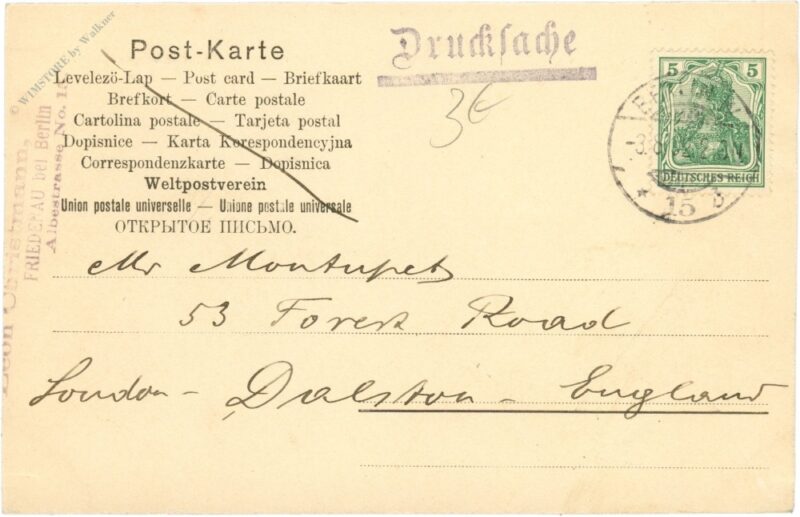 Post-Karte
Levelezö-Lap — Post card — Briefkaart
Brefkort — Carte postale
Cartolina postale — Tarjeta postal
Dopisnice — Karta Korespondencyjna
Correspondenzkarte — Dopisnica
Weltpostverein
Union postale universelle — Unione postale universale
ОТКРЫТОЕ ПИСЬМО.
Drucksache
3€
5 5
DEUTSCHES REICH
15
Mr Montupet
53 Forest Road
London - Dalston - England
Léon Christmann,
FRIEDENAU bei Berlin
Albestrasse No.
© WIMSTORE by Walkner